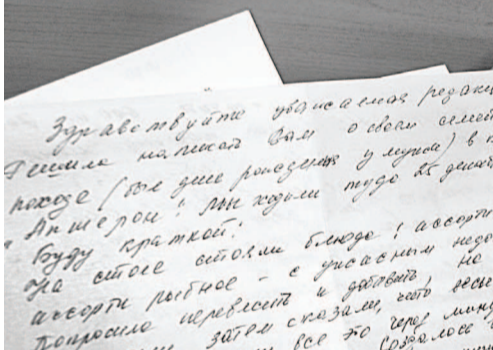 Здравствуйте уважаемая редакц
Решила написать Вам о своем семей
походе (был день рождения у мужа) в
"Апшерон". Мы ходили туда 25 декаб
Буду краткой:
На столе стояли блюда: ассорти
ассорти рыбное - с ужасным недо
попросила перевесить и добавить, но
затем сказали, что весы
все это через мину
создалось